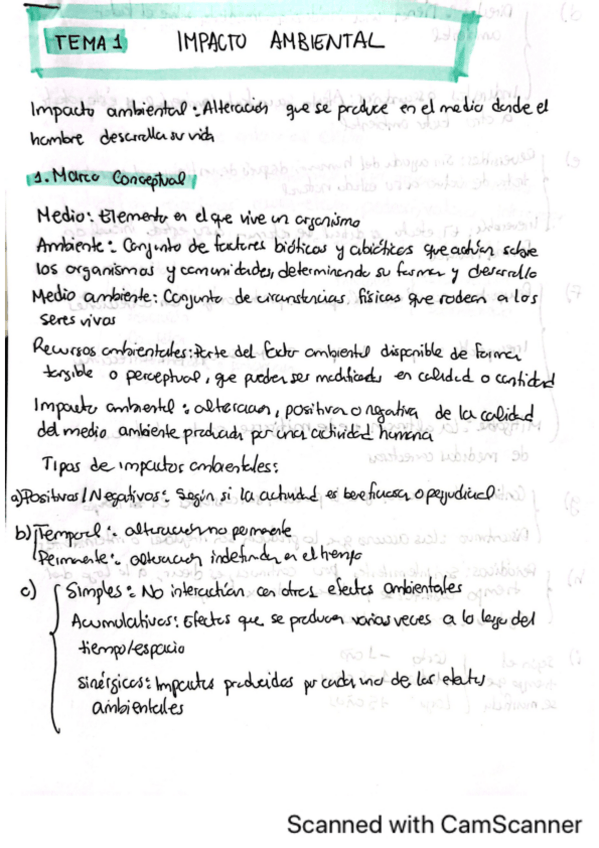 TEMA 1 IMPACTO AMBIENTAL
Impacto ambiental: Alteración que se produce en el medio donde el
hombre desarrolla su vida
1. Marco Conceptual
Medio: Elemento en el que vive un organismo
Ambiente: Conjunto de factores bióticos y abióticos que actúan sobre
los organismos y comunidades, determinando su forma y desarrollo
Medio ambiente: Conjunto de circunstancias físicas que rodean a los
seres vivos
Recursos ambientales: Parte del factor ambiental disponible de forma
tangible o perceptual, que pueden ser modificados en calidad o cantidad
Impacto ambiental: alteracion, positiva o negativa de la calidad
del medio ambiente producida por una actividad humana
Tipos de impactos ambientales:
a) Positivos/Negativos: Según si la actividad es beneficiosa o perjudicial
b) Temporal: alteracion no permanente
Permanente: alteración indefinida en el tiempo
c) Simples: No interactúan con otros efectos ambientales
Acumulativos: Efectos que se producen varias veces a lo largo del
tiempo/espacio
Sinérgicos: Impactos producidos por cada uno de los efectos
ambientales
Scanned with CamScanner